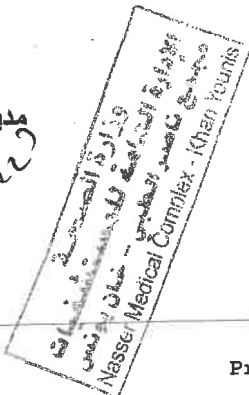 وزارة الصحة
الإدارة العامة
مجمع ناصر الطبي - خان يونس
Nasser Medical Complex - Khan Younis
Pr